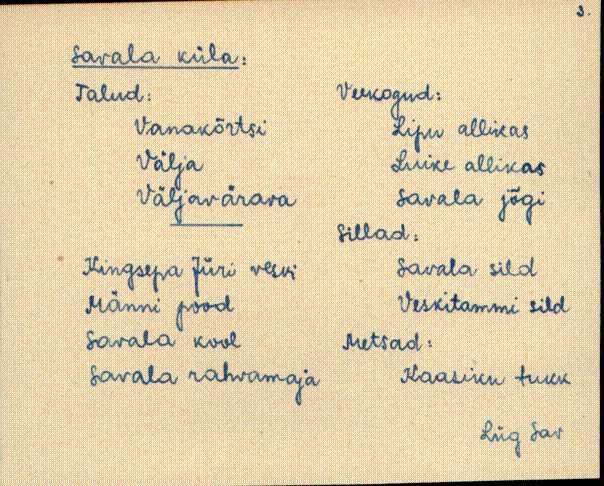 3.
Savala küla:
Talud:
Vanakõrtsi
Välja
Väljavärava
Kingsepa Jüri veski
Männi pood
Savala kool
Savala rahvamaja
Veekogud:
Lipu allikas
Luike allikas
Savala jõgi
Sillad:
Savala sild
Veskitammi sild
Metsad:
Kaasiku tukk
Lüg Sav